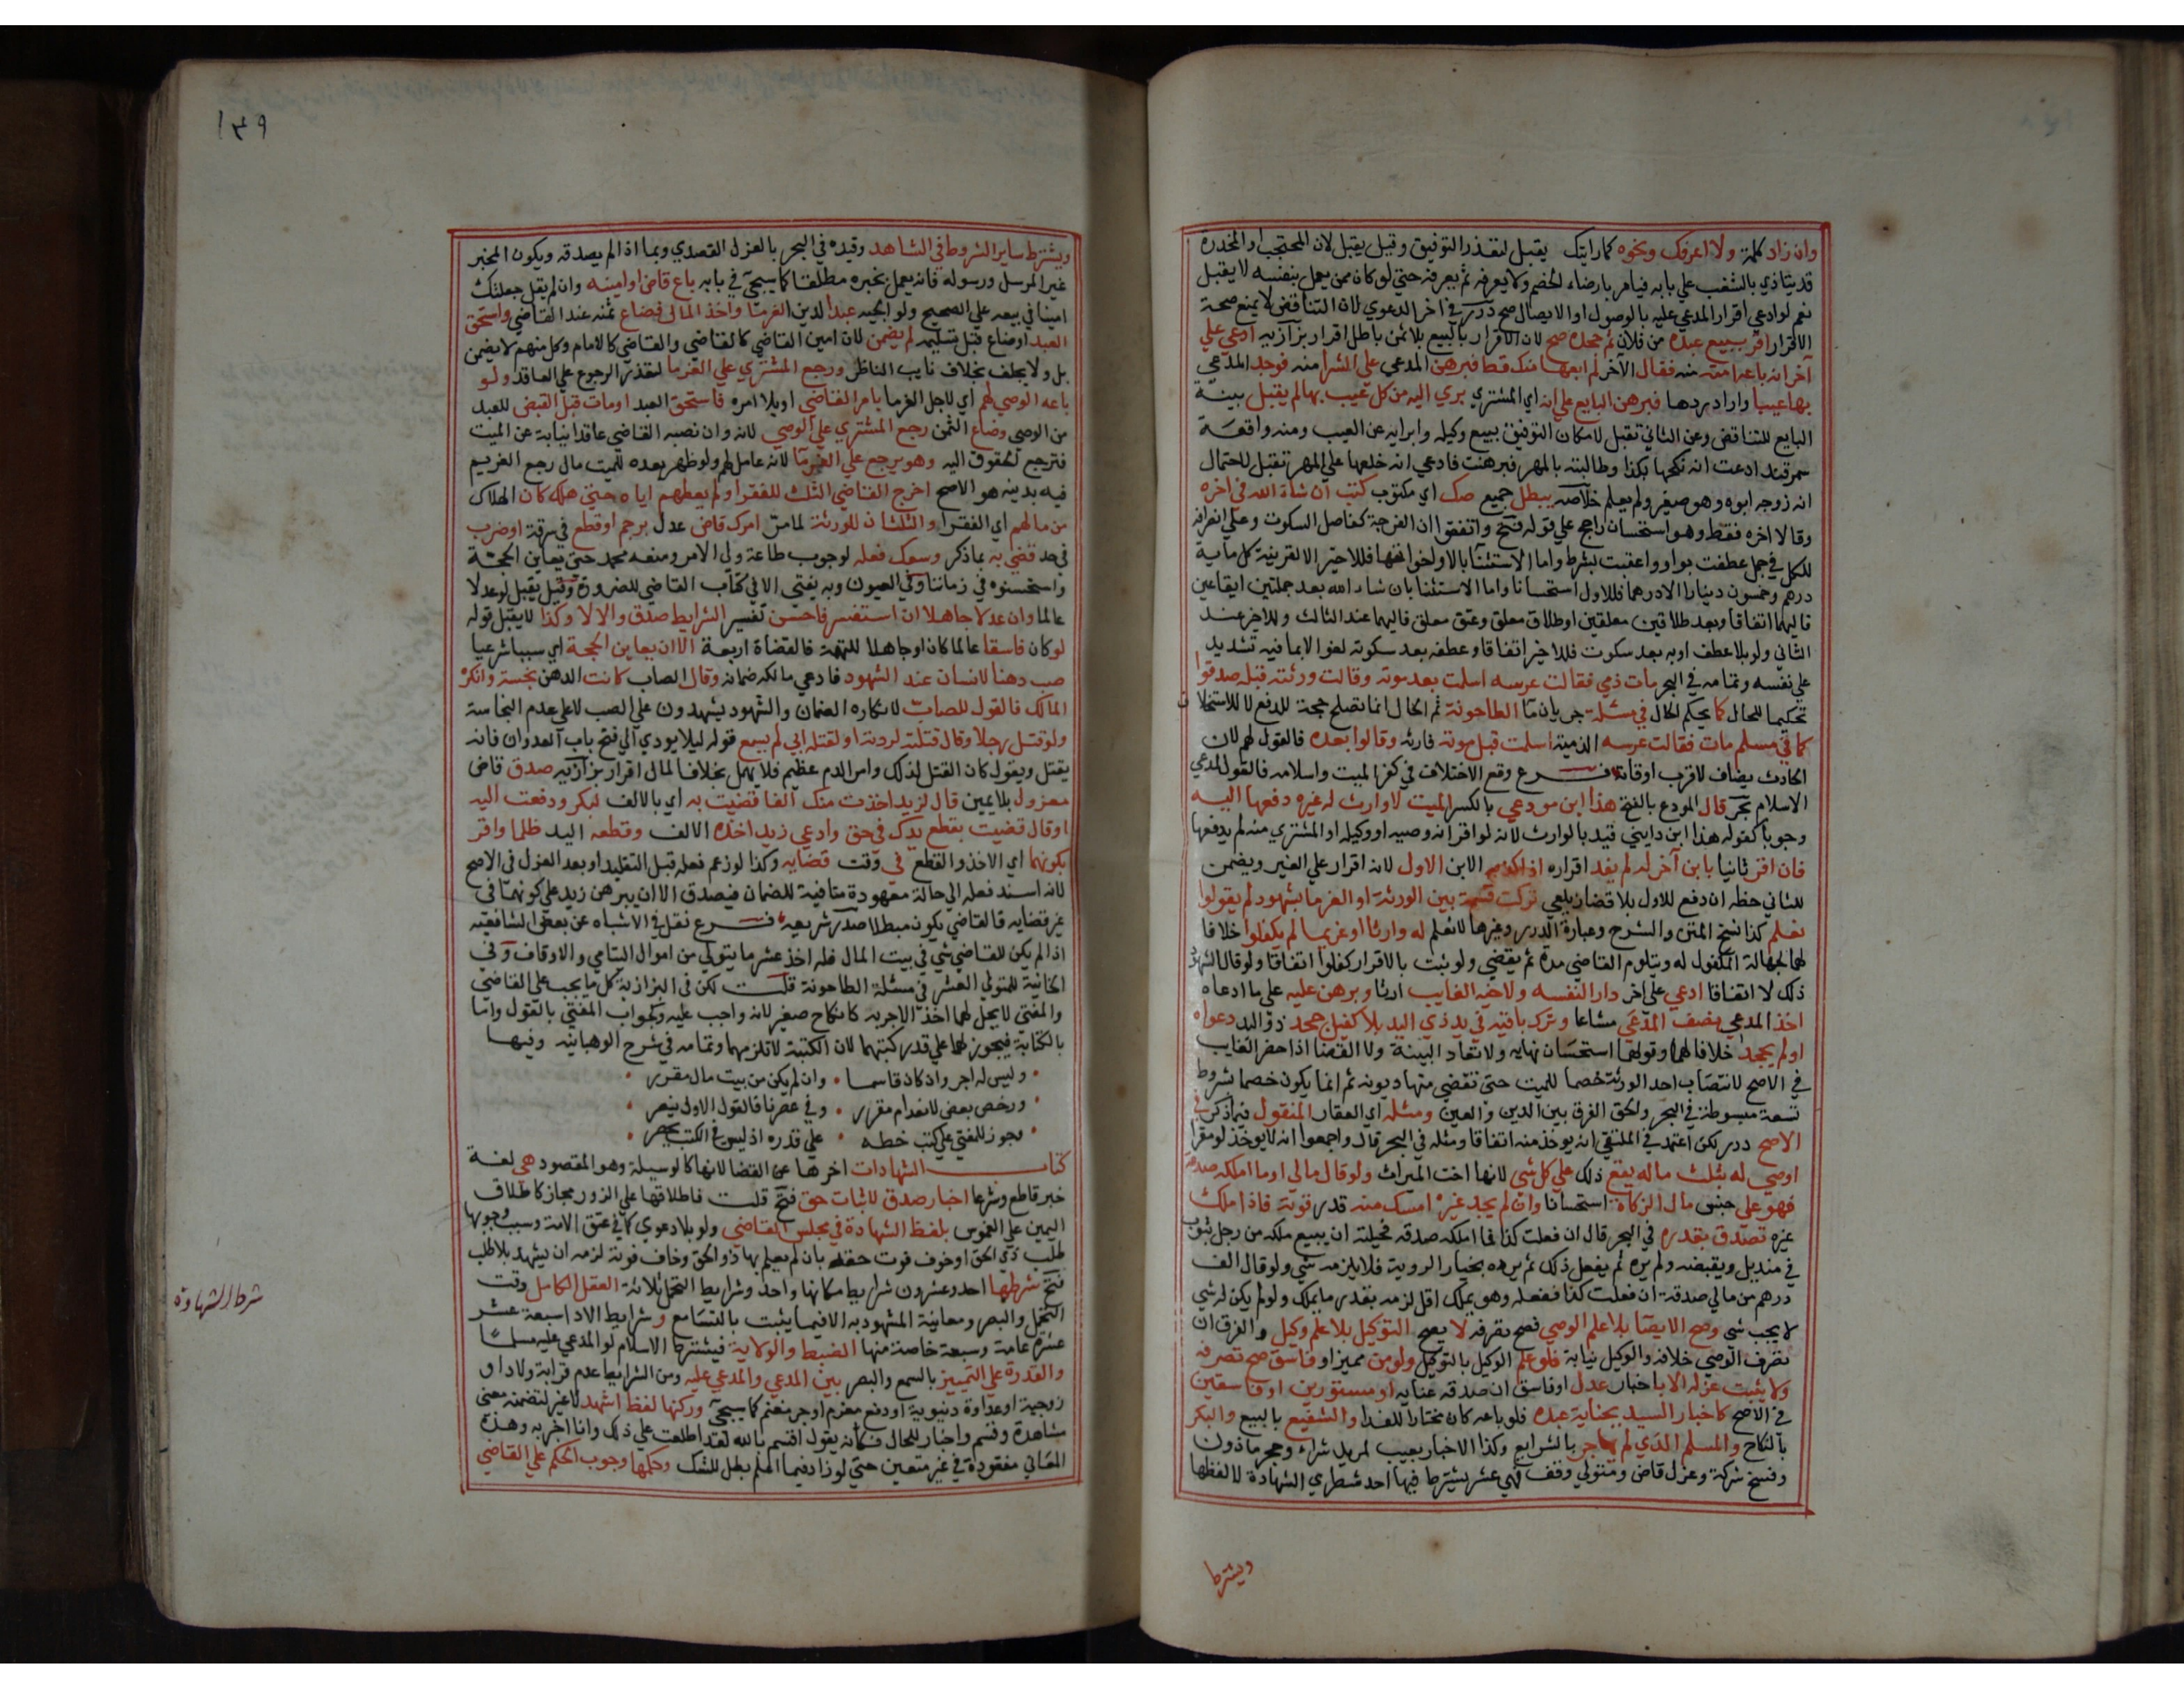 وان زاد كلمة ولا اعرفك ونحوه كما رايتك يقبل لتعذر التوفيق وقيل يقبل لان المحتجب او المخدرة
قد يتاذي بالشغب علي بابه فيامر بارضاء الخصم ولا يعرفه ثم يعرفه حتي لو كان ممن يعمل بنفسه لا يقبل
نعم لو ادعي اقرار المدعي عليه بالوصول او الايصال صح درر في اخر الدعوي لان التناقض لا يمنع صحة
الاقرار اقر ببيع عبده من فلان ثم جحده صح لان الاقرار بالبيع بلا ثمن باطل اقرار بزازيه ادعي علي
آخر انه باعه امته منه فقال الآخر لم ابعها منك قط فبرهن المدعي علي الشرا منه فوجد المدعي
بها عيبا واراد ردها فبرهن البايع علي انه اي المشتري بري اليه من كل عيب بها لم يقبل بينة
البايع للتناقض وعن الثاني تقبل لامكان التوفيق ببيع وكيله وابرايه عن العيب ومنه واقعة
سمرقند ادعت انه نكحها بكذا وطالبته بالمهر فبرهنت فادعي انه خلعها علي المهر تقبل لاحتمال
انه زوجه ابوه وهو صغير ولم يعلم خلاصه يبطل جميع صك اي مكتوب كتب ان شاء الله في اخره
وقالا اخره فقط وهو استحسان راجح علي قوله فتح واتفقوا ان الفرجة كفاصل السكوت وعلي انصرافه
للكل في جمل عطفت بواو واعقبت بشرط واما الاستثنا بالا واخواتها فللاخير الا لقرينة كل ماية
درهم وخمسون دينارا الا درهما فللاول استحسانا واما الاستثنا بان شاء الله بعد جملتين ايقاعين
فاليهما اتفاقا وبعد طلاقين معلقين او طلاق معلق وعتق معلق فاليهما عند الثالث وللاخير عند
الثاني ولو بلا عطف او به بعد سكوت فللاخير اتفاقا وعطفه بعد سكوته لغو الا بما فيه تشديد
علي نفسه وتمامه في البحر مات ذمي فقالت عرسه اسلمت بعد موته وقالت ورثته قبله صدقوا
تحكيما للحال كما يحكم الحال في مسئلة جريان ما الطاحونة ثم الحال انما تصلح حجة للدفع لا للاستحقاق
كما في مسلم مات فقالت عرسه الذمية اسلمت قبل موته فارثه وقالوا بعده فالقول لهم لان
الحادث يضاف لاقرب اوقاته فرع وقع الاختلاف في كفر الميت واسلامه فالقول لمدعي
الاسلام بحر قال المودع بالفتح هذا ابن مودعي بالكسر الميت لا وارث له غيره دفعها اليه
وجوبا كقوله هذا ابن دايني قيد بالوارث لانه لو اقر انه وصيه او وكيله او المشتري منه لم يدفعها
فان اقر ثانيا بابن آخر له لم يفد اقراره اذا كذبه الابن الاول لانه اقرار علي الغير ويضمن
للثاني حظه ان دفع للاول بلا قضا زيلعي تركت قسمة بين الورثة او الغرما بشهود لم يقولوا
نعلم كذا نسخ المتن والشرح وعبارة الدرر وغيرها لا نعلم له وارثا او غريما لم يكفلوا خلافا
لهما لجهالة المكفول له ويتلوم القاضي مدة ثم يقضي ولو ثبت بالاقرار كفلوا اتفاقا ولو قال الشهود
ذلك لا اتفاقا ادعي علي اخر دارا لنفسه ولاخيه الغايب ارثا وبرهن عليه علي ما ادعاه
اخذ المدعي نصف المدعي مشاعا وترك باقيه في يد ذي اليد بلا كفيل جحد ذو اليد دعواه
او لم يجحد خلافا لهما وقولهما استحسان نهايه ولا تعاد البينة ولا القضا اذا حضر الغايب
في الاصح لانتصاب احد الورثة خصما للميت حتي تقضي منها ديونه ثم انما يكون خصما بشروط
تسعة مبسوطة في البحر والحق الفرق بين الدين والعين ومثله اي العقار المنقول فيما ذكر في
الاصح درر لكن اعتمد في الملتقي انه يوخذ منه اتفاقا ومثله في البحر قال واجمعوا انه لا يوخذ لو مقرا
اوصي له بثلث ماله يقع ذلك علي كل شي لانها اخت الميراث ولو قال مالي او ما املكه صدقة
فهو علي جنس مال الزكاة استحسانا وان لم يجد غيره امسك منه قدر قوته فاذا ملك
غيره تصدق بقدره في البحر قال ان فعلت كذا فما املكه صدقه فحيلته ان يبيع ملكه من رجل بثوب
في منديل ويقبضه ولم يره ثم يفعل ذلك ثم يرده بخيار الروية فلا يلزمه شي ولو قال الف
درهم من مالي صدقة ان فعلت كذا ففعله وهو يملك اقل لزمه بقدر ما يملك ولو لم يكن له شي
لا يجب شي وصح الايصا بلا علم الوصي فصح تصرفه لا يصح التوكيل بلا علم وكيل والفرق ان
تصرف الوصي خلافه والوكيل نيابة فلو علم الوكيل بالتوكيل ولو من مميز او فاسق صح تصرفه
ولا يثبت عزله الا باخبار عدل او فاسق ان صدقه عنايه او مستورين او فاسقين
في الاصح كاخبار السيد بجناية عبده فلو باعه كان مختارا للفدا والشفيع بالبيع والبكر
بالنكاح والمسلم الذي لم يهاجر بالشرايع وكذا الاخبار بعيب لمريد شراء وحجر ماذون
وفسخ شركة وعزل قاض ومتولي وقف فهي عشر يشترط فيها احد شطري الشهادة لا لفظها
ويشترط
١٣٩
ويشترط ساير الشروط في الشاهد وقيده في البحر بالعزل القصدي وبما اذا لم يصدقه ويكون المخبر
غير المرسل ورسوله فانه يعمل بخبره مطلقا كما سيجئ في بابه باع قاض او امينه وان لم يقل جعلتك
امينا في بيعه علي الصحيح ولوالجيه عبدا لدين الغرما واخذ المال فضاع ثمنه عند القاضي واستحق
العبد او ضاع قبل تسليمه لم يضمن لان امين القاضي كالقاضي والقاضي كالامام وكل منهم لا يضمن
بل ولا يحلف بخلاف نايب الناظر ورجع المشتري علي الغرما لتعذر الرجوع علي العاقد ولو
باعه الوصي لهم اي لاجل الغرما بامر القاضي او بلا امره فاستحق العبد او مات قبل القبض للعبد
من الوصي وضاع الثمن رجع المشتري علي الوصي لانه وان نصبه القاضي عاقد نيابة عن الميت
فترجع الحقوق اليه وهو يرجع علي الغرما لانه عامل لهم ولو ظهر بعده للميت مال رجع الغريم
فيه بدينه هو الاصح اخرج القاضي الثلث للفقرا ولم يعطهم اياه حتي هلك كان الهلاك
من مالهم اي الفقرا والثلثان للورثة لما مر امرك قاض عدل برجم او قطع في سرقة او ضرب
في حد قضي به بما ذكر وسعك فعله لوجوب طاعة ولي الامر ومنعه محمد حتي يعاين الحجة
واستحسنوه في زماننا وفي العيون وبه يفتي الا في كتاب القاضي للضرورة وقيل يقبل لو عدلا
عالما وان عدلا جاهلا ان استفسر فاحسن تفسير الشرايط صدق والا لا وكذا لا يقبل قوله
لو كان فاسقا عالما كان او جاهلا للتهمة فالقضاة اربعة الا ان يعاين الحجة اي سببا شرعيا
صب دهنا لانسان عند الشهود فادعي مالكه ضمانه وقال الصاب كانت الدهن نجسة وانكره
المالك فالقول للصاب لانكاره الضمان والشهود يشهدون علي الصب لا علي عدم النجاسة
ولو قتل رجلا وقال قتلته لردته او لقتله ابي لم يسمع قوله ليلا يودي الي فتح باب العدوان فانه
يقتل ويقول كان القتل لذلك وامر الدم عظيم فلا يهمل بخلاف المال اقرار بزازيه صدق قاض
معزول بلا يمين قال لزيد اخذت منك الفا قضيت به اي بالالف لبكر ودفعت اليه
او قال قضيت بقطع يدك في حق وادعي زيد اخذه الالف وقطعه اليد ظلما واقر
بكونهما اي الاخذ والقطع في وقت قضايه وكذا لو زعم فعله قبل التقليد او بعد العزل في الاصح
لانه اسند فعله الي حالة معهودة منافية للضمان فيصدق الا ان يبرهن زيد علي كونهما في
غير قضايه فالقاضي يكون مبطلا صدر شريعه فرع نقل في الاشباه عن بعض الشافعيه
اذا لم يكن للقاضي شي في بيت المال فله اخذ عشر ما يتولي من اموال اليتامي والاوقاف وفي
الخانية للمتولي العشر في مسئلة الطاحونة قلت لكن في البزازية كل ما يجب علي القاضي
والمفتي لا يحل لهما اخذ الاجر به كانكاح صغير لانه واجب عليه وكجواب المفتي بالقول واما
بالكتابة فيجوز لهما علي قدر كتبهما لان الكتبة لا تلزمهما وتمامه في شرح الوهبانيه وفيها
وليس له اجر وان كان قاسما . وان لم يكن من بيت مال مقرر .
ورخص بعض لانعدام مقرر . وفي عصرنا فالقول الاول ينصر .
وجوز للمفتي علي كتب خطه . علي قدره اذ ليس في الكتب يحصر .
كتاب الشهادات اخرها عن القضا لانها كالوسيلة وهو المقصود هي لغة
خبر قاطع وشرعا اخبار صدق لاثبات حق فتح قلت فاطلاقها علي الزور مجاز كاطلاق
اليمين علي الغموس بلفظ الشهادة في مجلس القاضي ولو بلا دعوي كما في عتق الامة وسبب وجوبها
طلب ذي الحق او خوف فوت حقه بان لم يعلم بها ذو الحق وخاف فوته لزمه ان يشهد بلا طلب
فتح شرطها احد وعشرون شرايط مكانها واحد وشرايط التحمل ثلاثة العقل الكامل وقت
التحمل والبصر ومعاينة المشهود به الا فيما يثبت بالتسامع وشرايط الادا سبعة عشر
عشرة عامة وسبعة خاصة منها الضبط والولاية فيشترط الاسلام لو المدعي عليه مسلما
والقدرة علي التمييز بالسمع والبصر بين المدعي والمدعي عليه ومن الشرايط عدم قرابة ولاد او
زوجية او عداوة دنيوية او دفع مغرم او جر مغنم كما سيجئ وركنها لفظ اشهد لا غير لتضمنه معني
مشاهدة وقسم واخبار للحال فكانه يقول اقسم بالله لقد اطلعت علي ذلك وانا اخبر به وهذه
المعاني مفقودة في غيره فتعين حتي لو زاد فيما اعلم بطل للشك وحكمها وجوب الحكم علي القاضي
شرط الشهادة